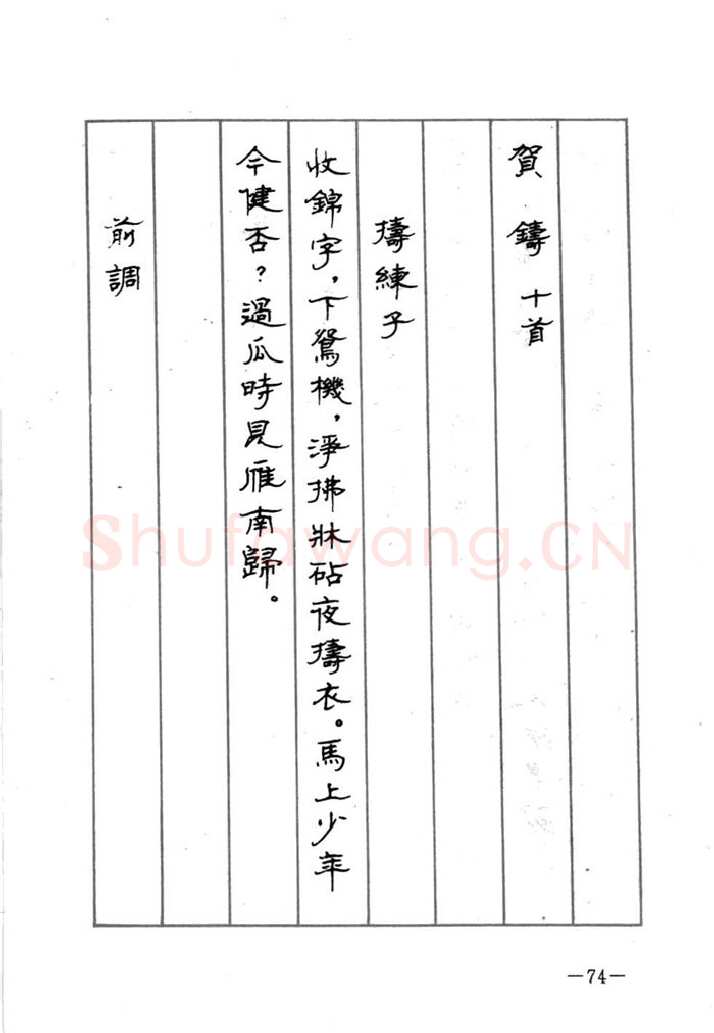 賀鑄十首
擣練子
收錦字，下鴛機，淨拂牀砧夜擣衣。馬上少年
今健否？過瓜時見雁南歸。
前調
Shufawang.CN
—74—